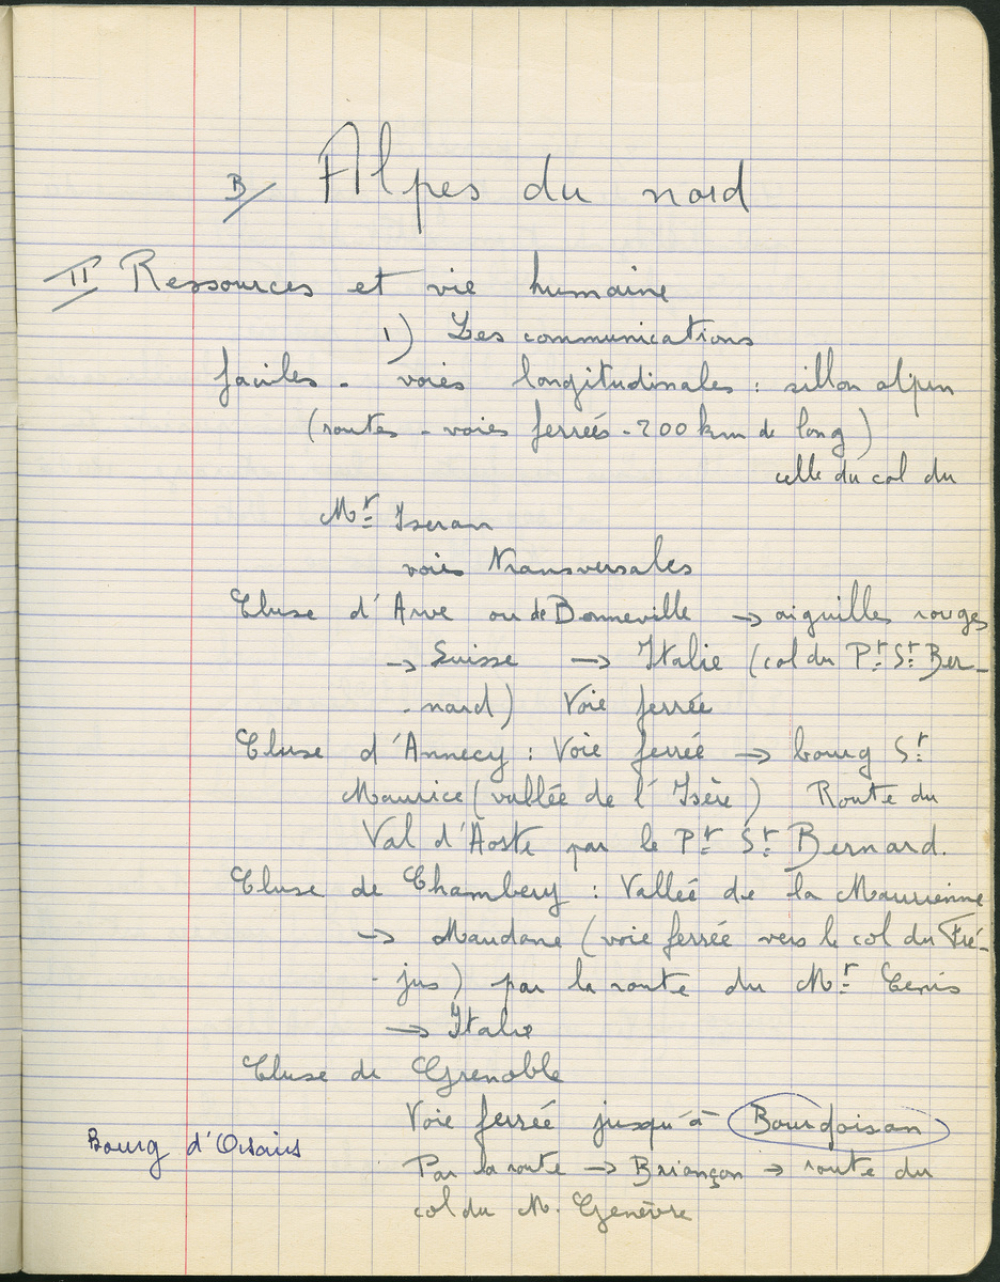 B/ Alpes du nord
II Ressources et vie humaine
1) Les communications
faciles - voies longitudinales : sillon alpin
(routes - voies ferrées - 200 km de long)
celle du col du
Mt Iseran
voies transversales
Cluse d'Arve ou de Bonneville → aiguilles rouges
→ Suisse → Italie (col du Pt St Ber-
-nard) Voie ferrée
Cluse d'Annecy : Voie ferrée → bourg St
Maurice (vallée de l'Isère) Route du
Val d'Aoste par le Pt St Bernard.
Cluse de Chambery : Vallée de la Maurienne
→ Maudane (voie ferrée vers le col du Fré-
-jus) par la route du Mt Cenis
→ Italie
Cluse de Grenoble
Voie ferrée jusqu'à Bourdoisan
Bourg d'Oisans
Par la route → Briançon → route du
col du M. Genèvre